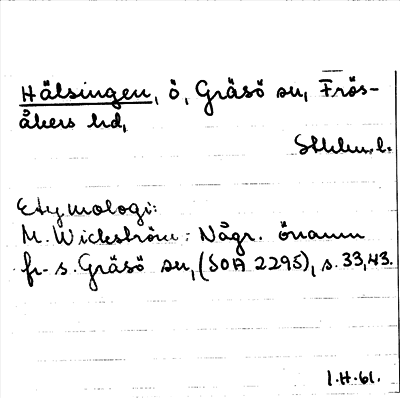 Hälsingen, ö, Gräsö sn, Frös-
åkers hd,
Sthlms l.
Etymologi:
M. Wickström: Någr. önamn
fr. s. Gräsö sn, (SOA 2295), s. 33, 43.
I.H.61.